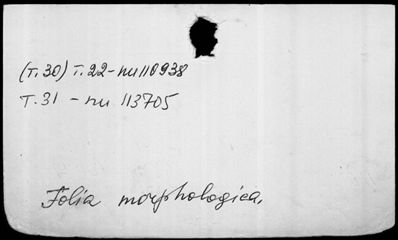 (т.30) т.22-nu 110938
т.31 - nu 113705
Folia morphologica,